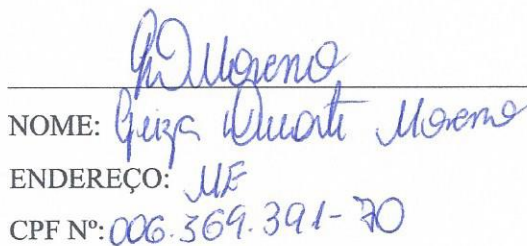 GD Moreno
NOME: Geiza Duarte Moreno
ENDEREÇO: ME
CPF Nº: 006.369.391-70